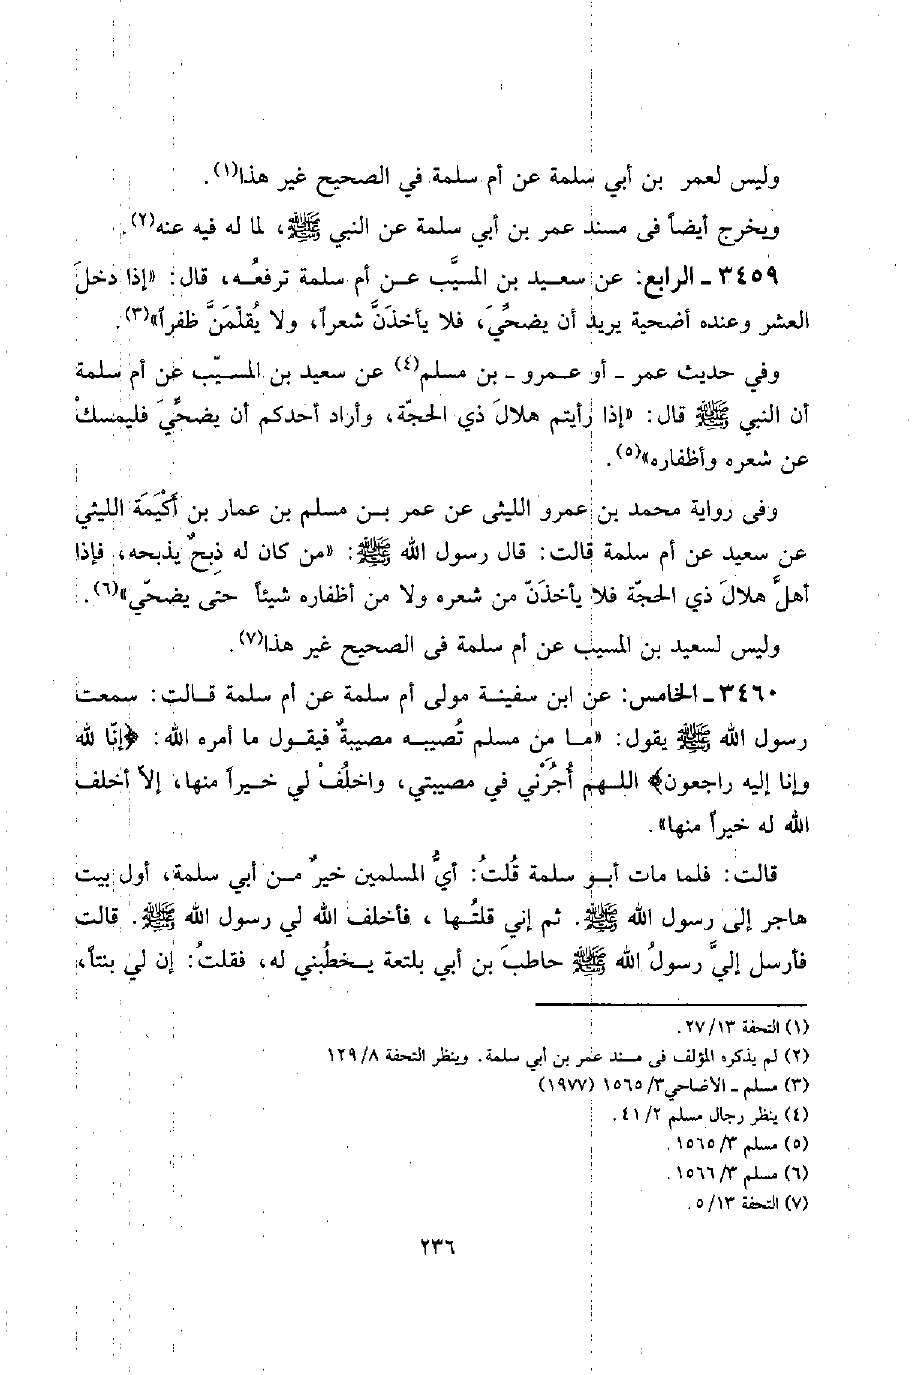 وليس لعمر بن أبي سلمة عن أم سلمة في الصحيح غير هذا(١).
ويخرج أيضاً فى مسند عمر بن أبي سلمة عن النبي ﷺ، لما له فيه عنه(٢).
٣٤٥٩ ـ الرابع: عن سعيد بن المسيَّب عن أم سلمة ترفعُه، قال: «إذا دخلَ
العشر وعنده أضحية يريد أن يضحيَّ، فلا يأخذَنَّ شعراً، ولا يُقلْمَنَّ ظفراً»(٣).
وفي حديث عمر ـ أو عمرو ـ بن مسلم(٤) عن سعيد بن المسيّب عن أم سلمة
أن النبي ﷺ قال: «إذا رأيتم هلالَ ذي الحجّة، وأراد أحدكم أن يضحِّيَ فليمسكْ
عن شعره وأظفاره»(٥).
وفى رواية محمد بن عمرو الليثى عن عمر بن مسلم بن عمار بن أُكَيْمَةَ الليثي
عن سعيد عن أم سلمة قالت: قال رسول الله ﷺ: «من كان له ذِبحٌ يذبحه، فإذا
أهلَّ هلالَ ذي الحجّة فلا يأخذَنّ من شعره ولا من أظفاره شيئاً حتى يضحّي»(٦).
وليس لسعيد بن المسيب عن أم سلمة فى الصحيح غير هذا(٧).
٣٤٦٠ ـ الخامس: عن ابن سفينة مولى أم سلمة عن أم سلمة قالت: سمعت
رسول الله ﷺ يقول: «ما من مسلم تُصيبه مصيبةٌ فيقول ما أمره الله: ﴿إنّا لله
وإنا إليه راجعون﴾ اللهم أْجُرْني في مصيبتي، واخلُفْ لي خيراً منها، إلاّ أخلف
الله له خيراً منها».
قالت: فلما مات أبو سلمة قُلتُ: أيُّ المسلمين خيرٌ من أبي سلمة، أول بيت
هاجر إلى رسول الله ﷺ. ثم إني قلتُها ، فأخلف الله لي رسول الله ﷺ. قالت
فأرسل إليَّ رسولُ الله ﷺ حاطبَ بن أبي بلتعة يخطُبني له، فقلتُ: إن لي بنتاً،
(١) التحفة ١٣/ ٢٧.
(٢) لم يذكره المؤلف فى مسند عمر بن أبي سلمة. وينظر التحفة ٨/ ١٢٩
(٣) مسلم ـ الأضاحي٣/ ١٥٦٥ (١٩٧٧)
(٤) ينظر رجال مسلم ٢/ ٤١.
(٥) مسلم ٣/ ١٥٦٥.
(٦) مسلم ٣/ ١٥٦٦.
(٧) التحفة ١٣/ ٥.
٢٣٦